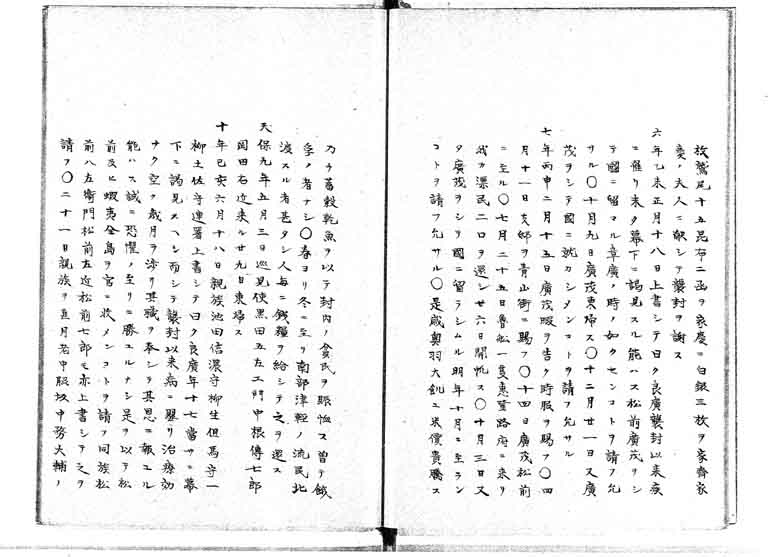 枚鷲尾十五昆布二函ヲ家慶ニ白銀三枚ヲ家齊家
慶ノ夫人ニ献シテ襲封ヲ謝ス
六年乙未正月十八日上書シテ曰ク良廣襲封以来疾
ニ罹リ未タ幕下ニ謁見スル能ハス松前廣茂ヲシ
テ國ニ留マル章廣ノ時ノ如クセンコトヲ請フ允
サル〇十月九日廣茂東帰ス〇十二月廿一日又廣
茂ヲシテ國ニ就カシメンコトヲ請フ允サル
七年丙申二月十五日廣茂暇ヲ告ク時服ヲ賜フ〇四
月十一日支邸ヲ青山街ニ賜フ〇十四日廣茂松前
ニ至ル〇七月二十五日魯船一隻恵登路府ニ来リ
我カ漂民二口ヲ還シ廿六日開帆ス〇十月三日又
タ廣茂ヲシテ國ニ留ラシムル明年十月ニ至ラン
コトヲ請フ允サル〇是歳奥羽大飢ユ米價貴騰ス
乃チ蓄穀乾魚ヲ以テ封内ノ貧民ヲ賑恤ス曽テ餓
孚ノ者ナシ〇春ヨリ冬ニ至リ南部津軽ノ流民北
渡スル者甚タシ人毎ニ銭糧ヲ給シテ之ヲ還ス
天保九年五月三日巡見使黒田五左エ門中根傳七郎
岡田右近来ル廿九日東帰ス
十年己亥六月十八日親族池田信濃守柳生但馬守一
柳土佐守連署上書シテ曰ク良廣年十七當サニ幕
下ニ謁見スヘシ而シテ襲封以来病ニ罹リ治療効
ナク空ク歳月ヲ渉リ其職ヲ奉シテ其恩ニ報ユル
能ハス誠ニ恐懼ノ至リニ勝ユルナシ是ヲ以テ松
前及ヒ蝦夷全島ヲ官ニ收メンコトヲ請フ同族松
前八左衛門松前左近松前七郎モ亦上書シテ之ヲ
請フ〇二十一日親族ヲ直月老中脇坂中務大輔ノ